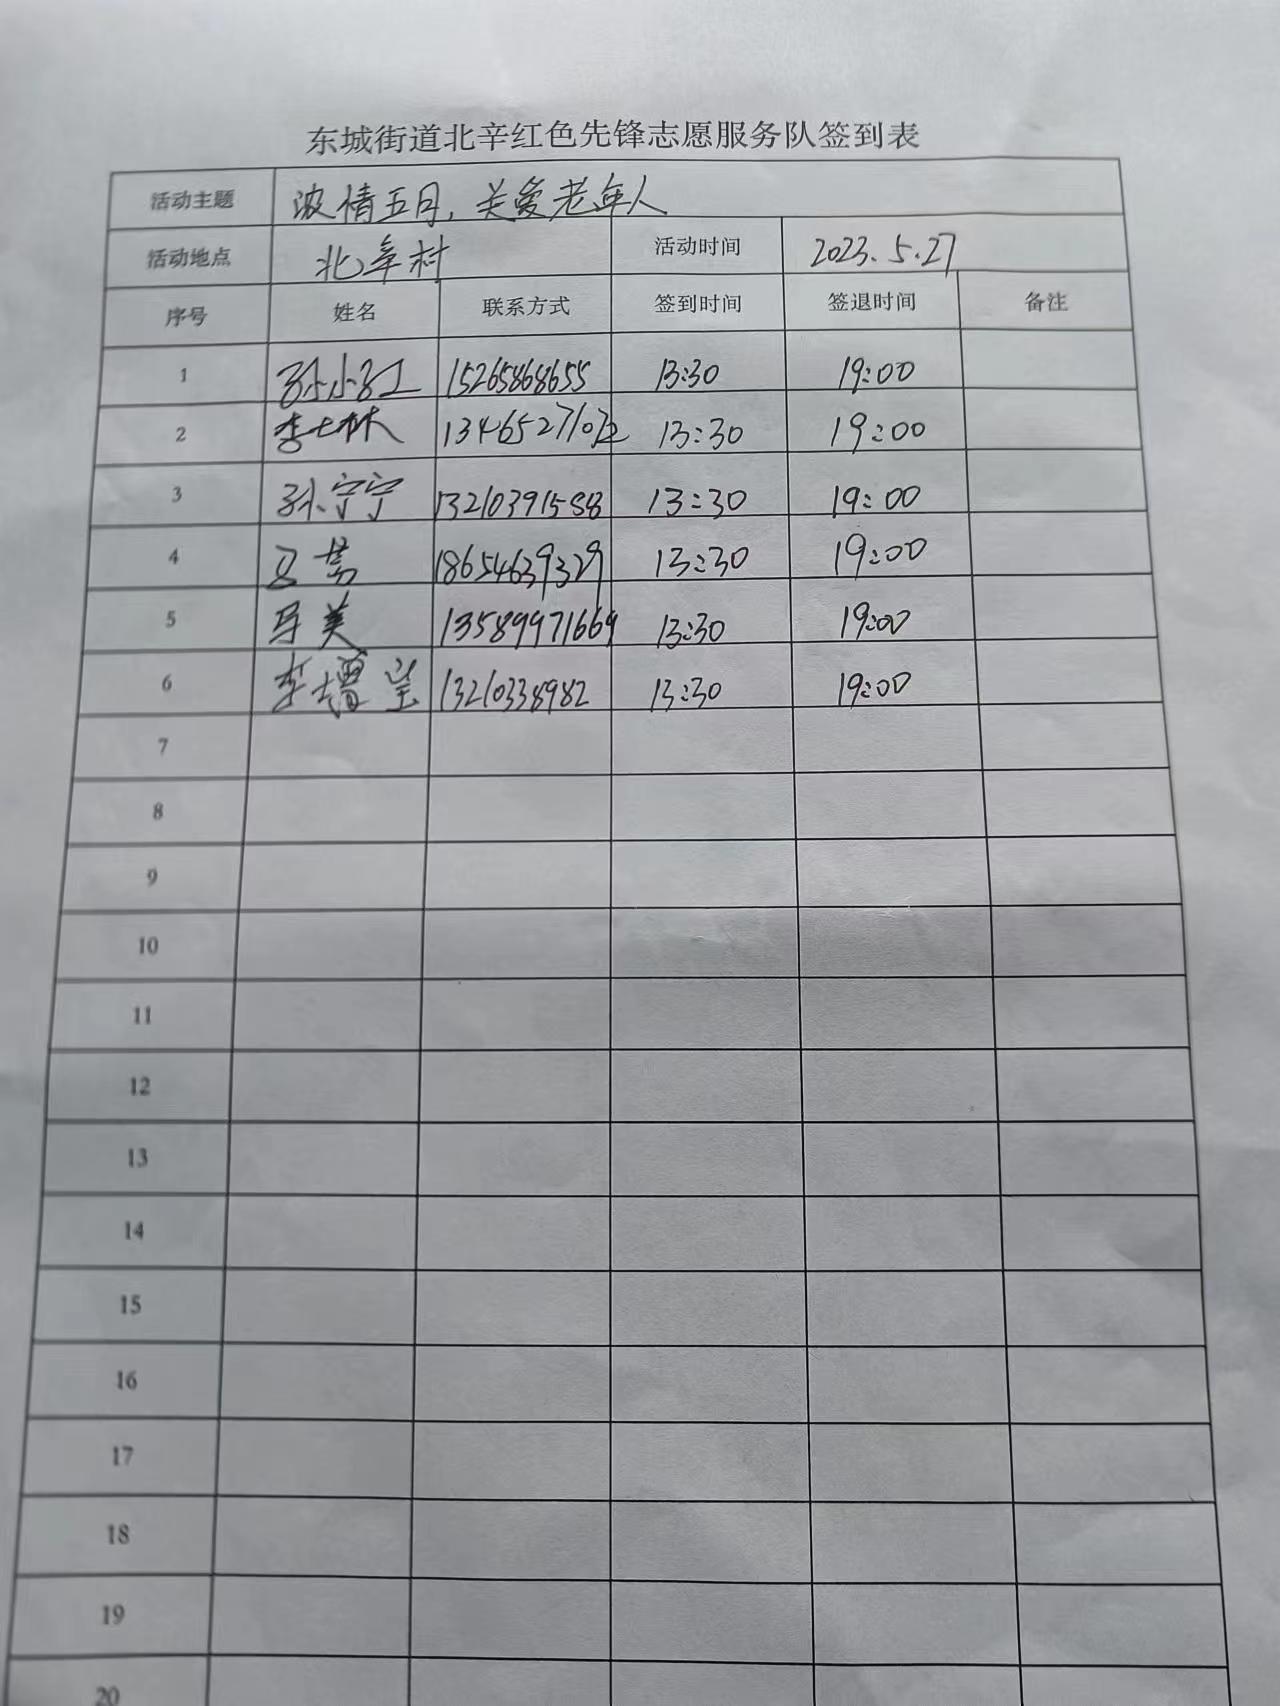 东城街道北辛红色先锋志愿服务队签到表
活动主题 浓情五月，关爱老年人
活动地点 北辛村 活动时间 2023.5.27
序号 姓名 联系方式 签到时间 签退时间 备注
1 孙小红 15265868655 13:30 19:00
2 李七林 13:30 19:00
3 孙宁宁 13210391588 13:30 19:00
4 18654639329 13:30 19:00
5 马美 13589971669 13:30 19:00
6 李增 13210338982 13:30 19:00
7
8
9
10
11
12
13
14
15
16
17
18
19
20